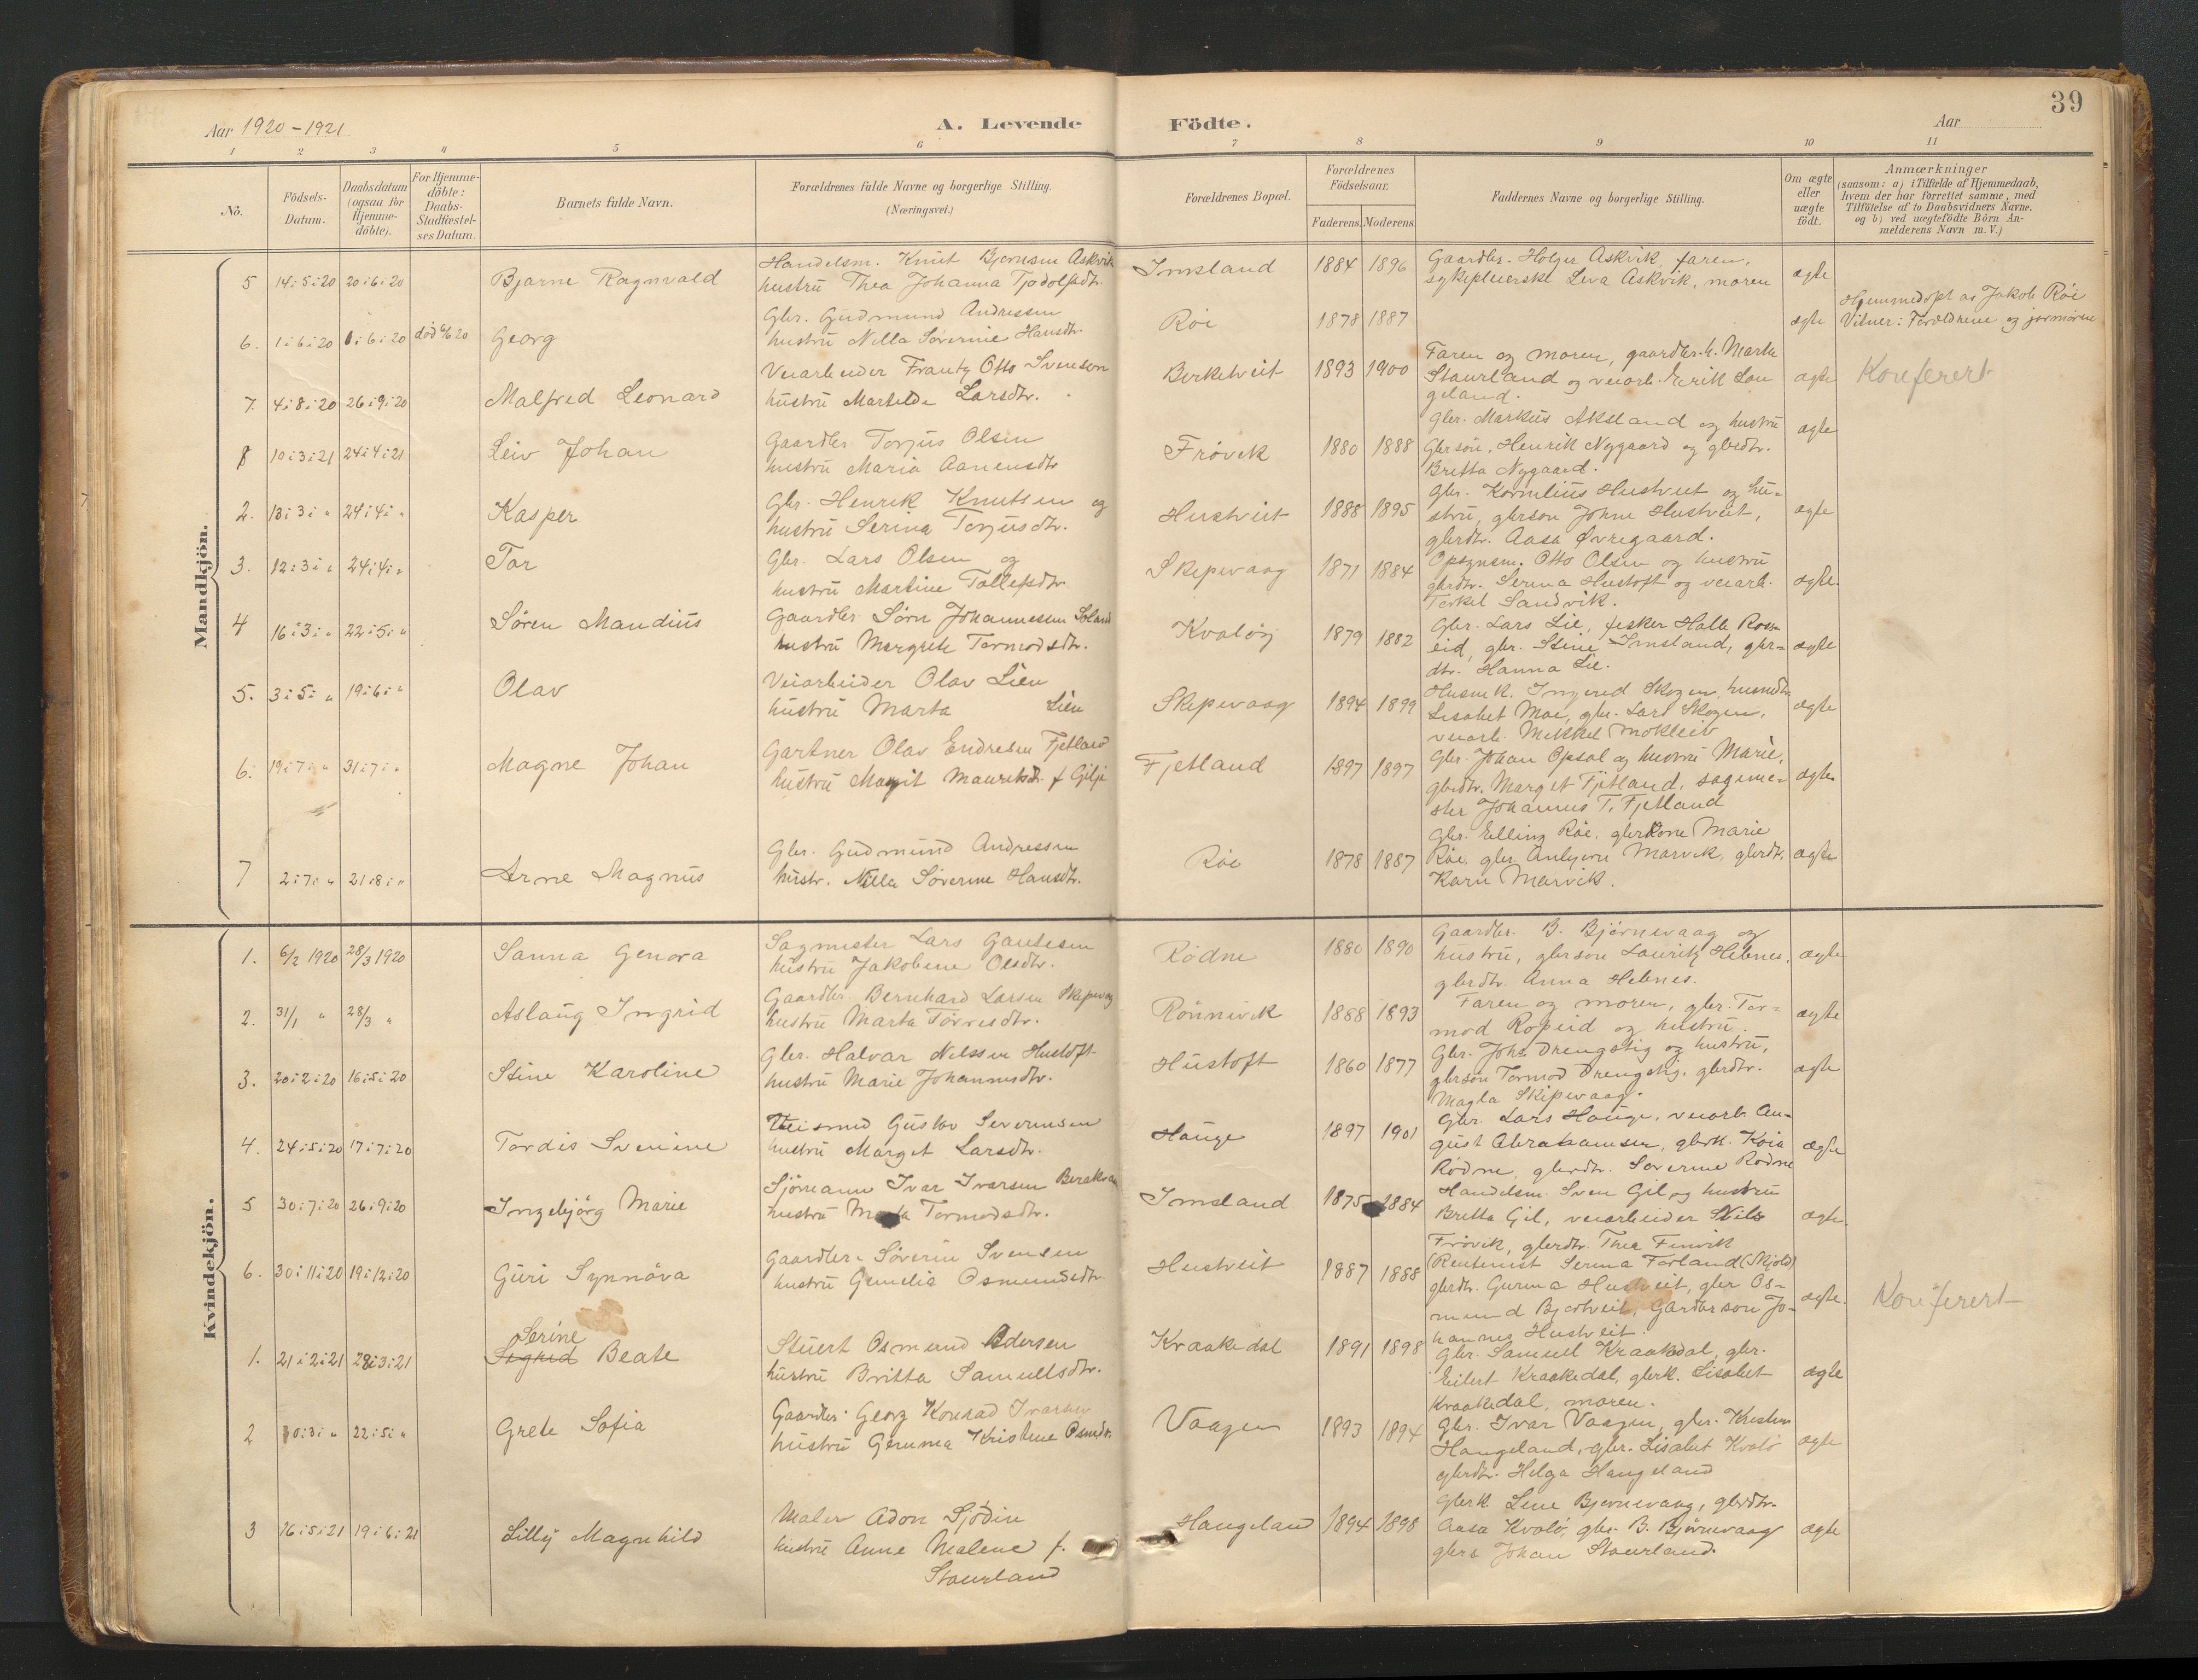 39
Aar 1920-1921 A. Levende Födte. Aar
1 2 3 4 5 6 7 8 9 10 11
No. Födsels-Datum. Daabsdatum (ogsaa for Hjemme-döbte). For Hjemme-döbte: Daabs-Stadfæstel-ses Datum. Barnets fulde Navn. Forældrenes fulde Navne og borgerlige Stilling. (Næringsvei.) Forældrenes Bopæl. Forældrenes Födselsaar. Faderens. Moderens. Faddernes Navne og borgerlige Stilling. Om ægte eller uægte födt. Anmærkninger (saasom: a) i Tilfælde af Hjemmedaab, hvem der har forrettet samme, med Tilföielse af to Daabsvidners Navne, og b) ved uægtefödte Börn An-melderens Navn m. V.)
Mandkjön.
5 14:5:20 20:6:20 Bjarne Ragnvald
Handelsm. Knut Bjørnsen Askvik
hustru Thea Johanna Tjodolfsdtr.
Imsland 1884 1896
Gaardbr. Holger Askvik, faren,
sykepleierske Leva Askvik, moren
ægte
6. 1:6:20 1:6:20 død 6/6 20 Georg
Gbr. Gudmund Andressen
hustru Nilla Søverine Hansdtr.
Røi 1878 1887 ægte
Hjemmedøpt av Jakob Røie
Vitner: Forældrene og jormoren
7. 4:8:20 26:9:20 Malfred Leonard
Veiarbeider Frantz Otto Svensen
hustru Martilde Larsdtr.
Birkelveit 1893 1900
Faren og moren, gaardbr.k. Marta
Staurland og veiarb. Eirik Lon
geland.
ægte Konferert
8 10:3:21 24:4:21 Leiv Johan
Gaardbr. Torjus Olsen
hustru Maria Aanensdtr
Frøvik 1880 1888
Gbr. Markus Aksland og hustru
Gbrsøn. Henrik Nygaard og gbrdtr.
Britta Nygaard.
ægte
2. 13:3:" 24:4:" Kasper
Gbr. Henrik Knutsen og
hustru Serina Torjusdtr.
Hustveit 1888 1895
Gbr. Kornelius Hustveit og hu=
stru, gbrson Johne Hustveit,
gbrdtr. Aasa Øvregaard.
ægte
3. 12:3:" 24:4:" Tor
Gbr. Lars Olsen og
hustru Martine Tollefsdtr
Skipevaag 1871 1884
Opsynsm. Otto Olsen og hustru
gbrdtr. Serina Hustoft og veiarb.
Torkel Sandvik.
ægte.
4 16:3:" 22:5:" Søren Mandius
Gaardbr Sørn Johannessen Soland
hustru Margrete Tormodsdtr.
Kvaløy 1879 1882
Gbr. Lars Lie, fisker Halle Ross
eid, gbr. Stine Imsland, gbr=
dtr. Hanna Lie.
ægte
5. 3:5:" 19:6:" Olav
Veiarbeider Olav Lien
hustru Marta Lien
Skipevaag 1894 1899
Husmk. Ingerid Skogen, husmdtr.
Lisabet Moe, gbr. Lars Skogen,
veiarb. Mikkel Mokleiv
ægte
6. 19:7:" 31:7:" Magne Johan
Gartner Olav Endresen Fjetland
hustru Magit Mauritsdtr. f Gilje
Fjetland 1897 1897
Gbr. Johan Opsal og hustru Marie,
gbrdtr. Marget Fjetland, sagme=
ster Johannes T. Fjetland
ægte
7 2:7:" 21:8:" Arne Magnus
Gbr. Gudmund Andressen
hustr. Nilla Søverine Hansdtr.
Røie 1878 1887
Gbr. Elling Røie, gbrkone Marie
Røie, gbr. Anbjørn Marvik, gbrdtr.
Karn Marvik.
ægte
Kvindekjön.
1. 6/2 1920 28/3 1920 Sanna Genora
Sagmester Lars Gautesen
hustru Jakobine Olsdtr.
Rødne 1880 1890
Gaardbr. B. Bjørnevaag og
hustru, gbrson Lauritz Hebnes,
gbrdtr. Anna Hebnes.
ægte
2. 31/1 " 28/3 " Aslaug Ingrid
Gaardbr. Bernhard Larsen Skipevag
hustru Marta Tørresdtr.
Rønnevik 1888 1893
Faren og moren, gbr. Tor=
mod Ropeid og hustru.
ægte
3. 20:2:20 16:5:20 Stine Karoline
Gbr. Halvar Nilssen Hustoft
hustru Marie Johannesdtr.
Hustoft 1860 1877
Gbr. Johs. Drengstig og hustru,
gbrson Tormod Drengstig, gbrdtr.
Magla Skipevaag.
ægte
4. 24:5:20 17:7:20 Tordis Svenine
Gustav Severinsen
hustru Marget Larsdtr.
Hauge 1897 1901
Gbr. Lars Hauge, veiarb. Au-
gust Abrahamsen, gbrk. Koia
Rødne, gbrdtr. Soverine Rødne
ægte
5 30:7:20 26:9:20 Ingebjørg Marie
Sjømann Ivar Ivarsen
hustru Marta Tormodsdtr.
Imsland 1875 1884
Handelsm. Sven Gil og hustru
Britta Gil, veiarbeider Nils
Frøvik, gbrdtr. Thea Frøvik
ægte.
6. 30:11:20 19:12:20 Guri Synnøva
Gaardbr. Søverin Svensen
hustru Gunelia Osmundsdtr.
Hustveit 1887 1888
(Rentenist Serina Forland (Skjold)
gbrdtr. Gurina Hustveit, gbr Os-
mund Bjortveit, Garbrson Jo-
hannes Hustveit.
ægte. Konferert
1. 21:2:21 28:3:21 Serine
Sigrid Beate
Stuert Osmund Edersen
hustru Britta Samuelsdtr.
Kraakedal 1891 1898
Gbr. Samuel Kraakdal, gbr.
Eilert Kraakedal, gbrk. Lisabet
Kraakedal, moren.
ægte
2 10:3:" 22:5:" Grete Sofia
Gaardbr. Georg Konrad Ivarsen
hustru Gemma Kristine Osmdtr.
Vaagen 1893 1894
Gbr. Ivar Vaagen, gbr. Kristen
Haugeland, gbr. Lisabet Kvalø
gbrdtr. Helga Haugeland
ægte
3 16:5:21 19:6:21 Lilly Magnhild
Maler Adon Sjødin
hustru Anne Malene f.
Staurland
Haugeland 1894 1898
Gbrk Line Bjørnevaag, gbrdtr.
Aasa Kvalø, gbr. B. Bjørnevaag
gbrs Johan Staurland.
ægte